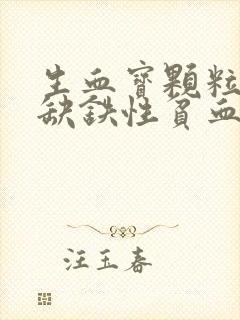 生血寶顆粒
缺鉄性貧血
汪玉春